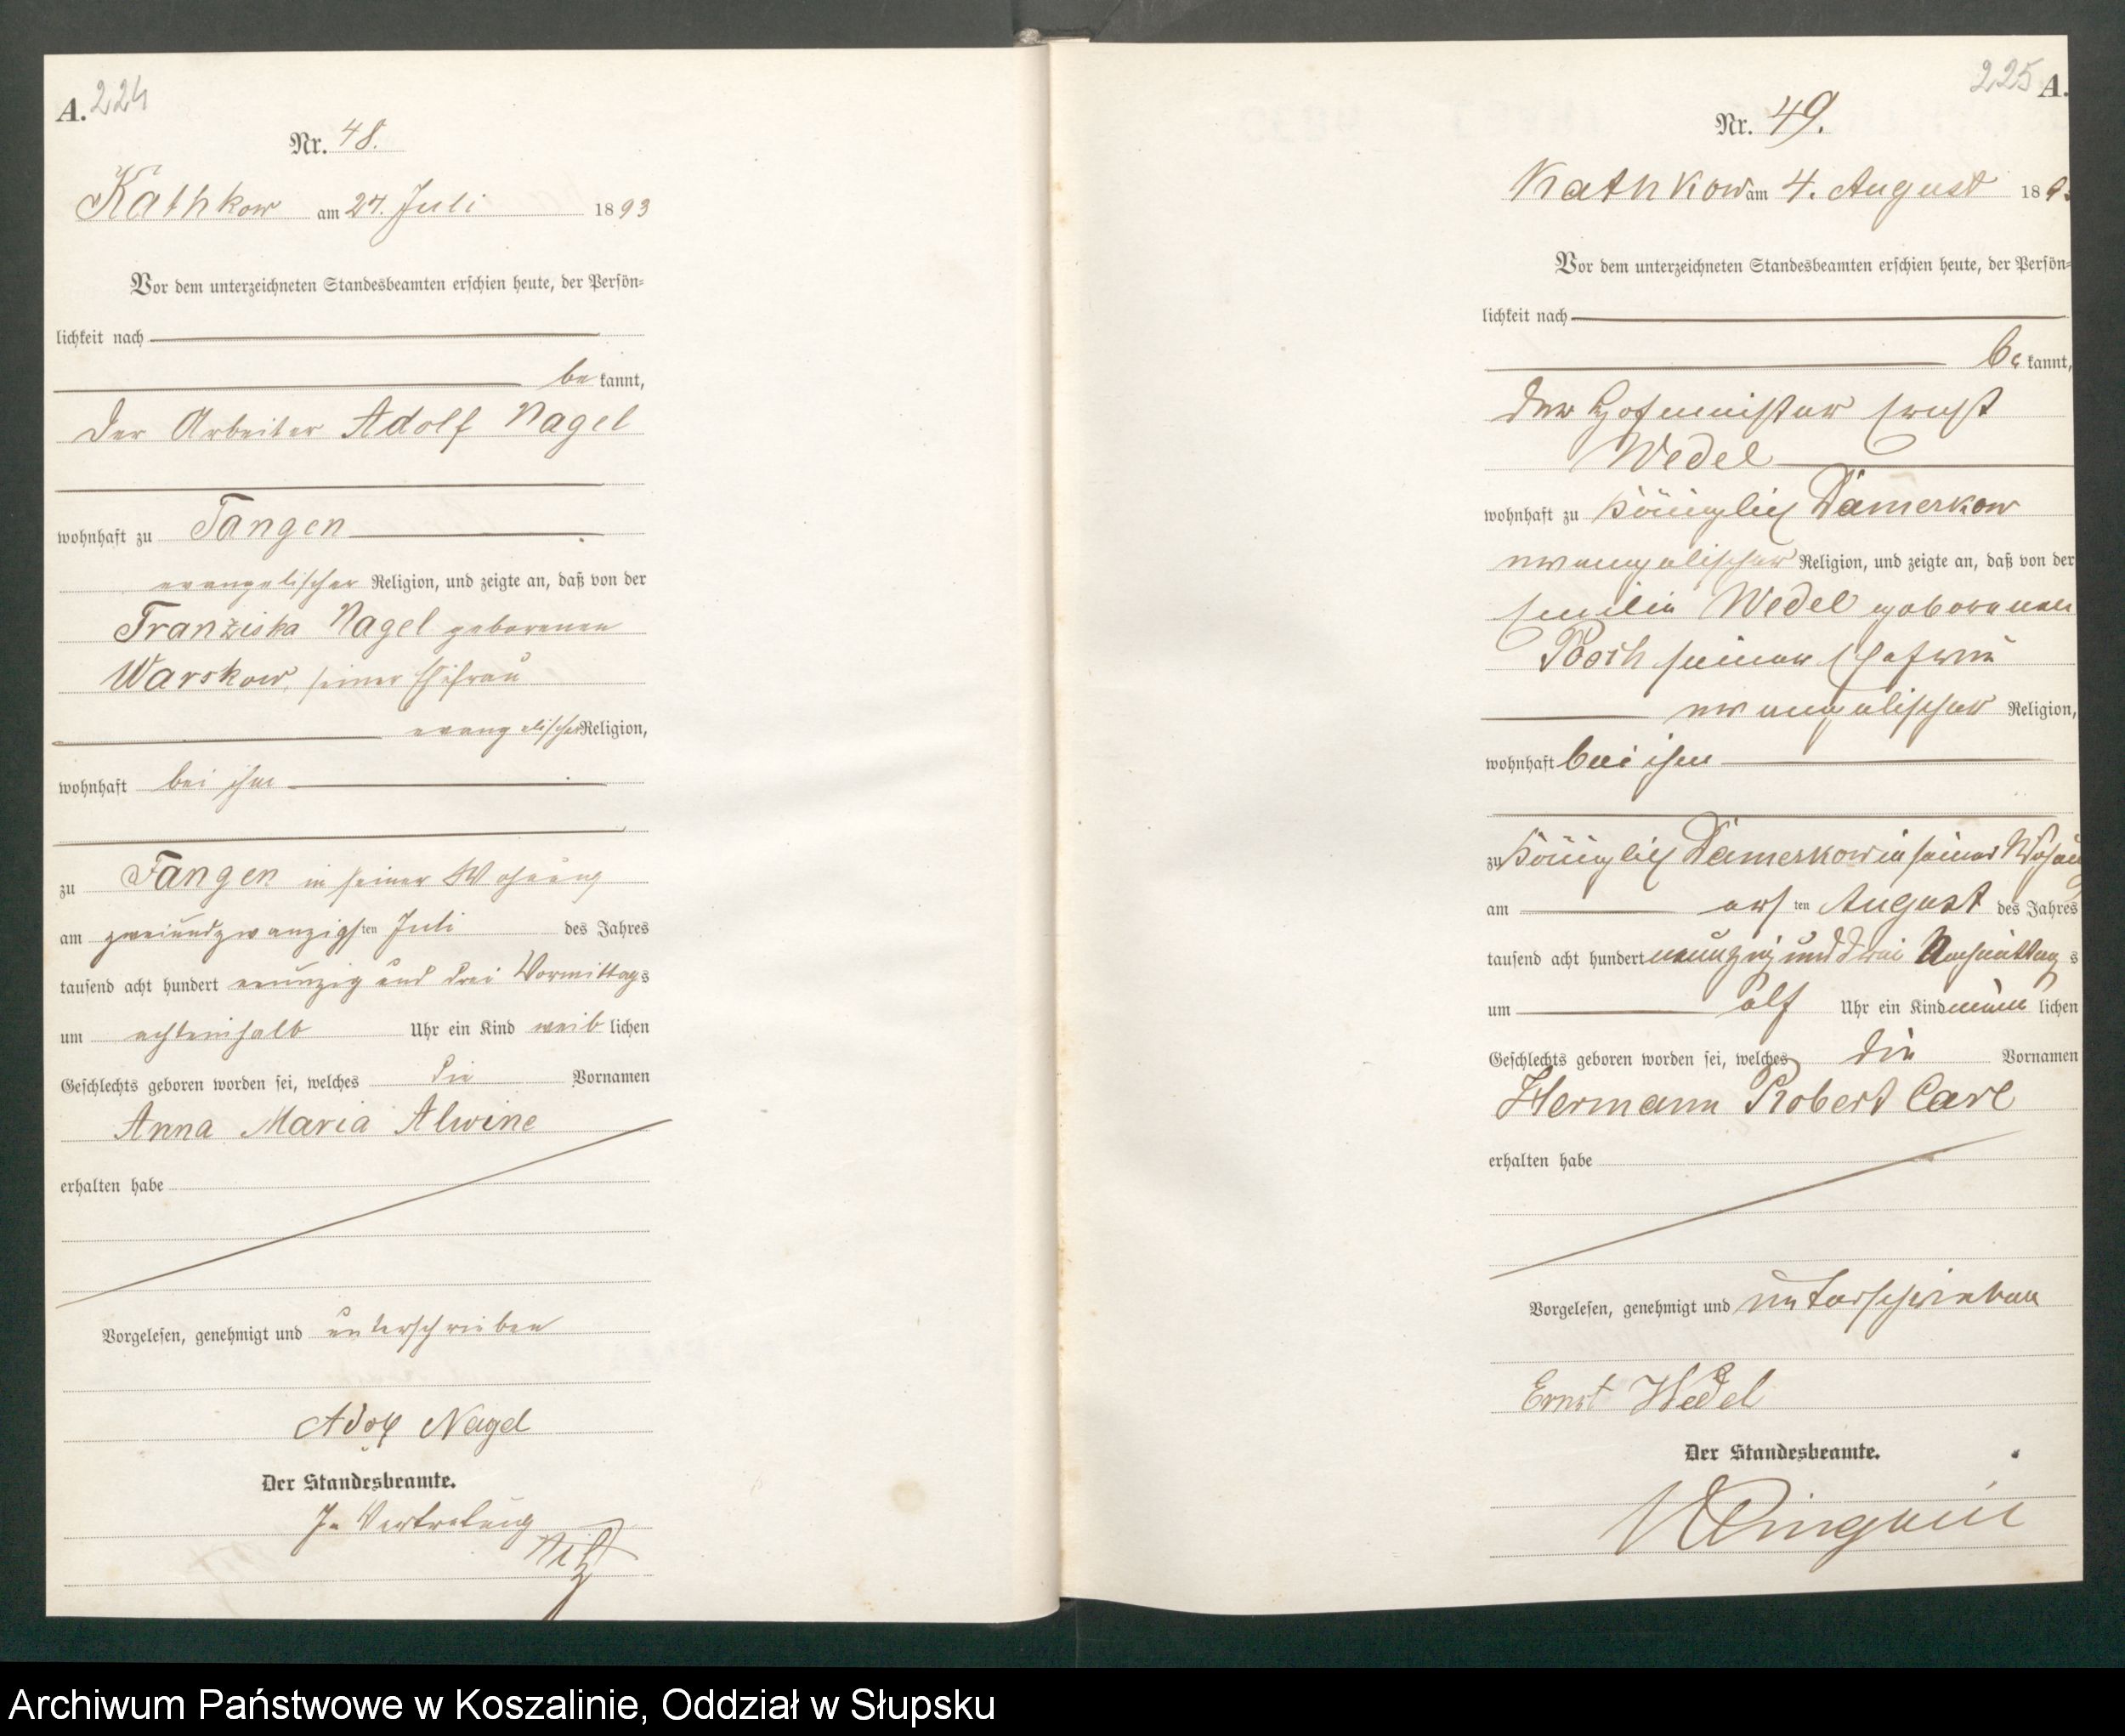 A. 224
Nr. 48.
Kathkow am 27. Juli 1893
Vor dem unterzeichneten Standesbeamten erschien heute, der Persön-
lichkeit nach
be kannt,
der Arbeiter Adolf Nagel
wohnhaft zu Tangen
evangelischer Religion, und zeigte an, daß von der
Franziska Nagel geborenen
Warskow, seiner Ehefrau
evangelischer Religion,
wohnhaft bei ihm
zu Tangen in seiner Wohnung
am zweiundzwanzigsten Juli des Jahres
tausend acht hundert neunzig und drei Vormittags
um achteinhalb Uhr ein Kind weiblichen
Geschlechts geboren worden sei, welches die Vornamen
Anna Maria Alwine
erhalten habe
Vorgelesen, genehmigt und unterschrieben
Adolf Nagel
Der Standesbeamte.
In Vertretung
225 A.
Nr. 49.
Kathkow am 4. August 1893
Vor dem unterzeichneten Standesbeamten erschien heute, der Persön-
lichkeit nach
be kannt,
der Hofmeister Ernst
Wedel
wohnhaft zu Königlich Damerkow
evangelischer Religion, und zeigte an, daß von der
Emilie Wedel geborenen
Posch seiner Ehefrau
evangelischer Religion,
wohnhaft bei ihm
zu Königlich Damerkow in seiner Wohnung
am ersten August des Jahres
tausend acht hundert neunzig und drei Nachmittags
um elf Uhr ein Kind männlichen
Geschlechts geboren worden sei, welches die Vornamen
Hermann Robert Carl
erhalten habe
Vorgelesen, genehmigt und unterschrieben
Ernst Wedel
Der Standesbeamte.
Archiwum Państwowe w Koszalinie, Oddział w Słupsku